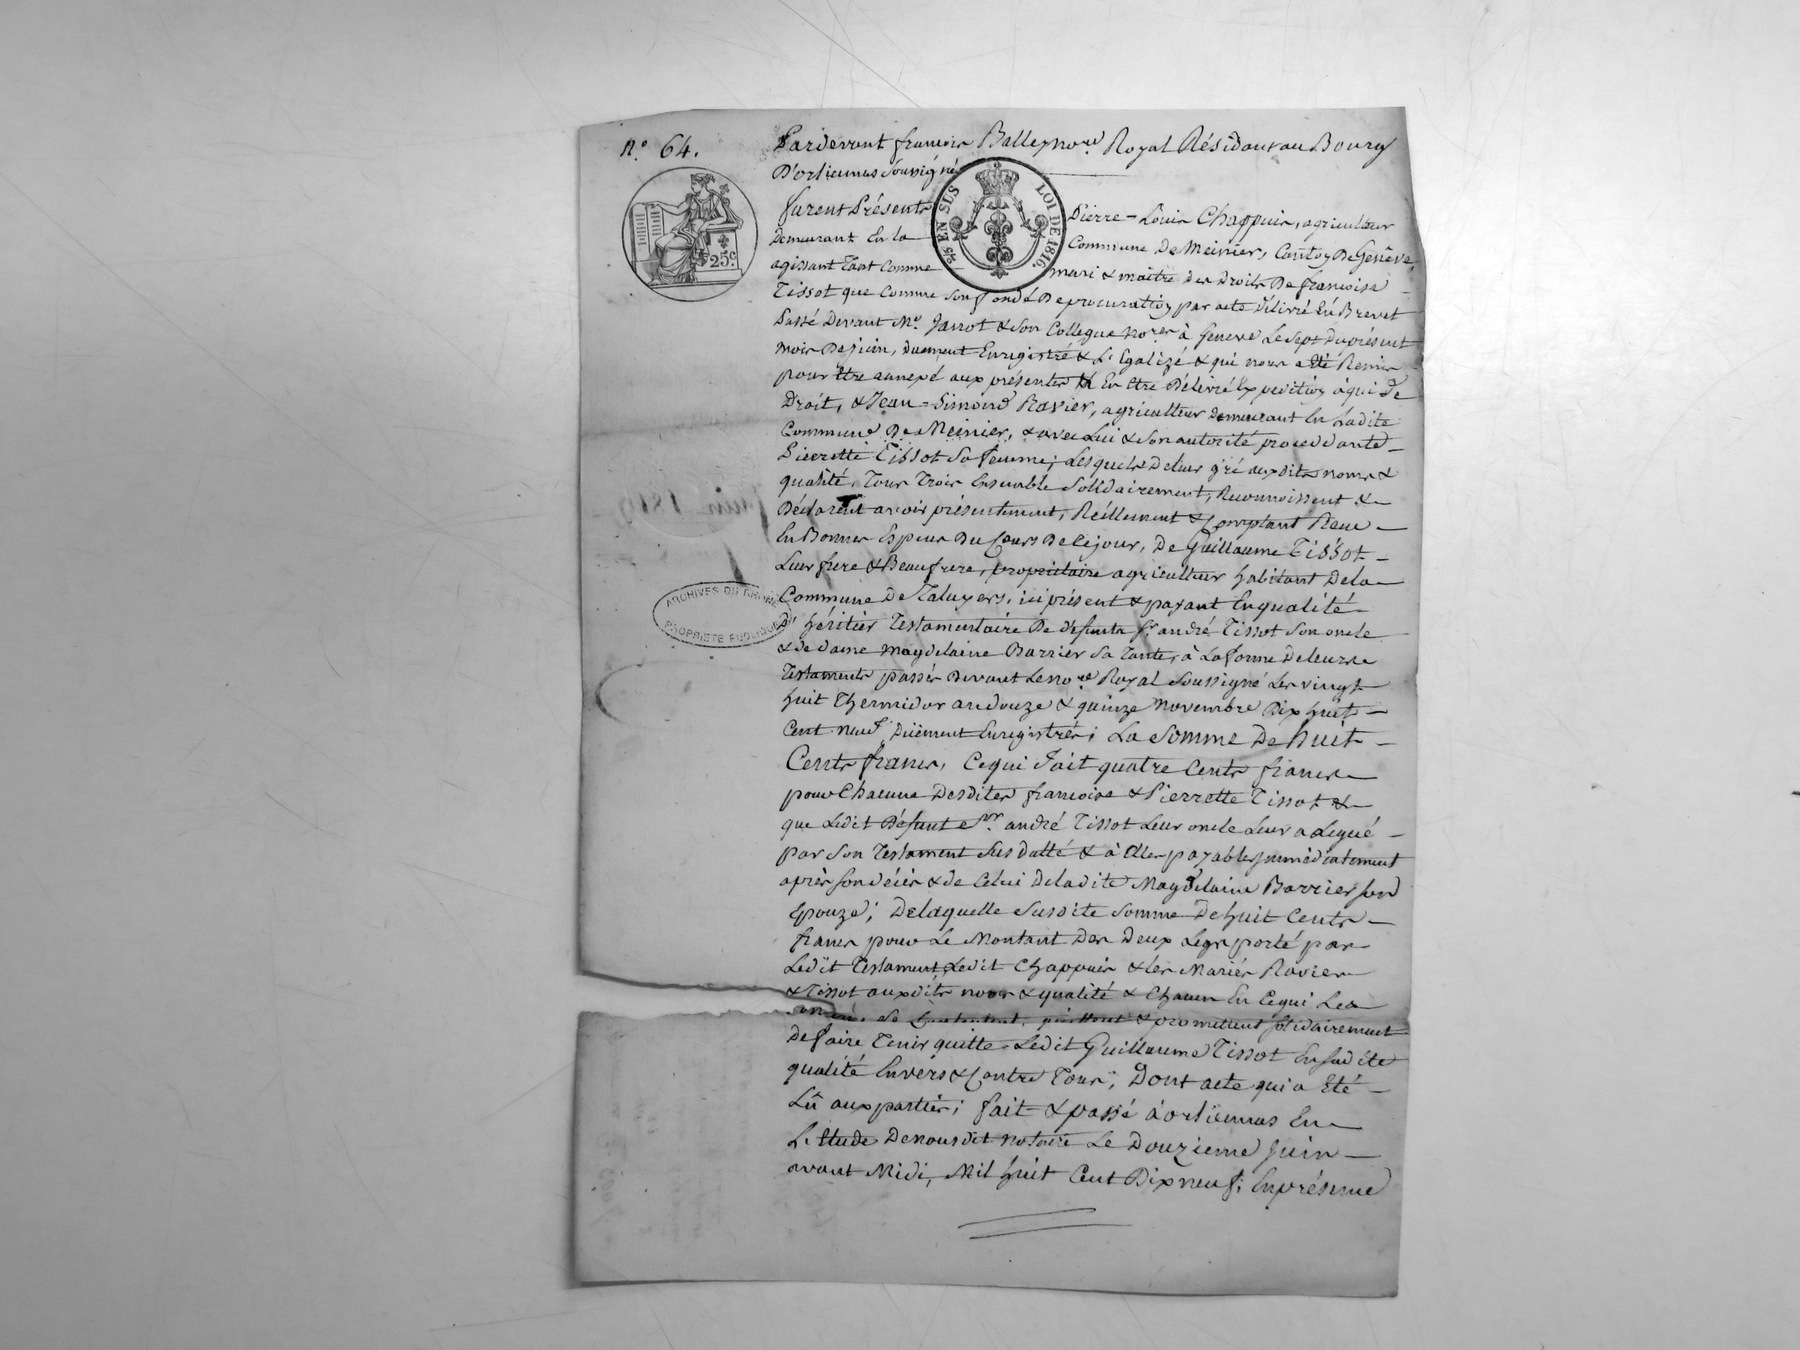 N.° 64.
Pardevant françois Balley no.re Royal Résidant au Bourg
D'orliennas soussigné
furent Présents Pierre-Louis Chappuis, agriculteur
Demeurant En la Commune De Meinier, Canton De Genêve,
agissant tant Comme mari & maitre des Droits De françoise
Tissot que Comme son fondé De procuration par acte Délivré En Brevet
Passé Devant M.e Janot & son Collegue no.res à Geneve Le sept du présent
mois De juin, duement Enregistré & L'Egalizé & qui nous a Eté Remis
pour être annexé aux présentes & En etre Délivré Expedition à qui de
Droit, & Jean-Simond Ravier, agriculteur Demeurant En Ladite
Commune De Meinier, & avec Lui & son autorité procedante
Pierrette Tissot sa femme; Lesquels De leur gré auxdits noms &
qualité, Tous Trois Ensemble solidairement, Reconnoissent &
Déclarent avoir présentement, Réellement & Comptant Reçu
En Bonnes Espèces Du Cours De Ce jour, De Guillaume Tissot
Leur frere & Beaufrere, propriétaire agriculteur habitant De la
Commune De Taluyers, ici présent & payant En qualité
D'héritier Testamentaire De défunts s.r andré Tissot son oncle
& de Dame Magdelaine Barrier sa Tante, à La forme De leurs
Testaments passés Devant Le no.re Royal soussigné Les vingt
huit Thermidor an douze & quinze novembre Dix huit
Cent neuf Duëment Enregistrés; La somme De huit
Cents francs, Ce qui fait quatre Cents francs
pour Chacune Desdites françoise & Pierrette Tissot &
que Ledit Défunt s.r andré Tissot Leur oncle Leur a Legué
par Son Testament sus Datté & à Elles payables immédiatement
après son décès & de Celui De ladite Magdelaine Barrier son
Epouze; De laquelle susdite somme De huit Cents
francs pour Le Montant Des Deux Legs porté par
Ledit Testament, Ledit Chappuis & les Mariés Ravier
& Tissot auxdits noms & qualité & Chacun En Cequi Les
se Contentent, quittent & promettent solidairement
De faire Tenir quitte Ledit Guillaume Tissot En sadite
qualité Envers & Contre Tous; Dont acte qui a Eté
Lû aux parties; fait & passé à orliennas En
L'Etude De nousdit notaire Le Douzieme juin
avant Midi, Mil huit Cent Dix neuf; En présence
25 C.
945 EN SUS LOI DE 1816.
ARCHIVES DU RHÔNE
PROPRIÉTÉ PUBLIQUE